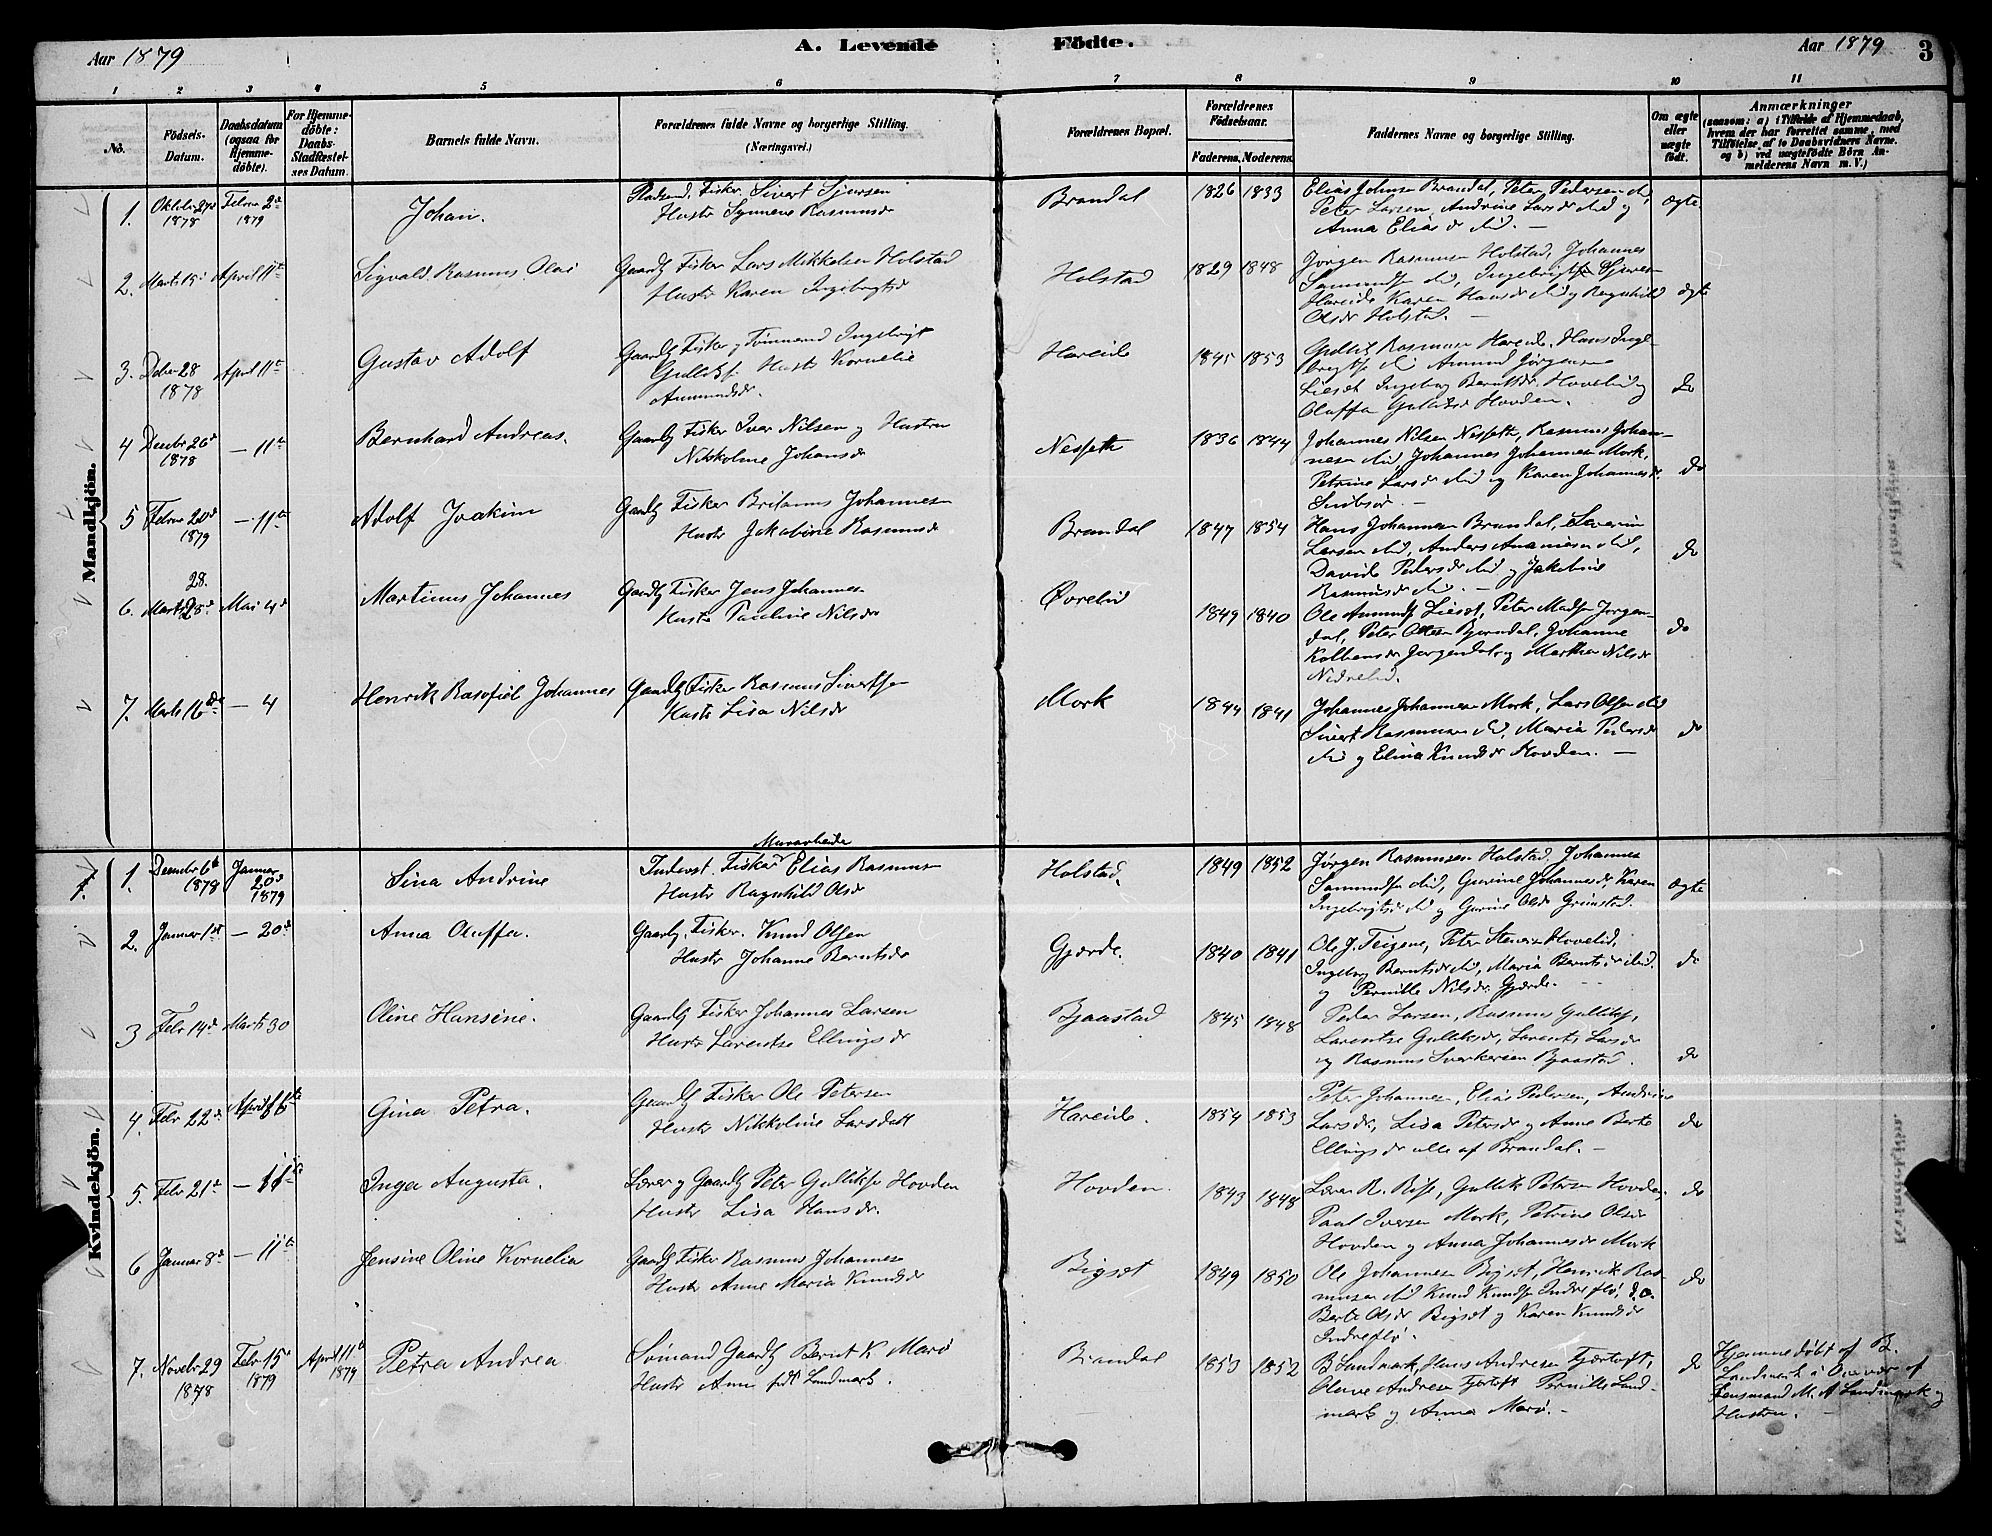 Aar 1879
A. Levende Födte.
Aar 1879
3
1 2 3 4 5 6 7 8 9 10 11
No.
Födsels-Datum.
Daabsdatum (ogsaa for Hjemme-döbte).
For Hjemme-döbte: Daabs-Stadfæstel-ses Datum.
Barnets fulde Navn.
Forældrenes fulde Navne og borgerlige Stilling.
(Næringsvei.)
Forældrenes Bopæl.
Forældrenes Födselsaar.
Faderens. Moderens.
Faddernes Navne og borgerlige Stilling.
Om ægte eller uægte födt.
Anmærkninger
(saasom: a) i Tilfælde af Hjemmedaab,
hvem der har forrettet samme, med
Tilföielse af to Daabsvidners Navne.
og b) ved uægtefödte Börn An-
melderens Navn m. V.)
Mandkjön.
1. Oktober 27de 1878 Februar 2de 1879
Johan.
Pladsmd. Fisker Sivert Sjursen
Hustr Synneve Rasmusdr
Brandal 1826 1833
Elias Johnsen Brandal, Peter Pedersen ibid,
Peter Larsen, Andrine Larsdr ibid og
Anna Eliasdr ibid. —
ægte.
2. Marts 15 April 11te
Sigvald Rasmus Olai
Gaardb Fisker Lars Mikkelsen Holstad
Hustr Karen Ingebrigtsdr
Holstad 1829 1848
Jørgen Rasmusen Holstad, Johannes
Samundsen ibid, Ingebrigt Sjursen
Hareide Karen Hansdr ibid og Ragnhild
Olsdr Holstad. —
ægte
3. Decbr 28 1878 April 11te
Gustav Adolf
Gaardb Fisker og Tømmermd Ingebrigt
Gulliksen Hustr Kornelie
Amundsdr.
Hareide 1845 1853
Gullik Rasmusen Hareide, Hans Inge-
brigtsen ibid Amund Jørgensen
Lieset Ingeborg Berntsdr. Hovelid og
Oluffa Gulliksdr Hovden.
do
4 Decembr 26de 1878 — 11te
Bernhard Andreas.
Gaardb Fisker Iver Nilsen og Hustru
Nikkoline Johansdr
Nesseth 1836 1844
Johannes Nilsen Nesseth, Rasmus Johan-
nesen ibid, Johannes Johannesen Mork,
Petrine Larsdr ibid og Karen Johannesdr.
do
5 Februar 20de 1879 — 11te
Adolf Joakim
Gaardb Fisker Britanus Johannesen
Hustr Jakobine Rasmusdr
Brandal 1847 1854
Hans Johannesen Brandal, Severin
Larsen ibid, Anders Ananiasen ibid,
Davide Pedersdr ibid og Jakobine
Rasmusdr ibid. —
do
28.
6. Marts 28de Mai 4de
Martinus Johannes
Gaardb Fisker Jens Johannesen
Hustr Pauline Nilsdr
Øvrelid 1849 1840
Ole Amundsen Lieset, Peter Madsen Jørgen-
dal, Peter Olsen Bjørndal, Johanne
Kolbensdr Jørgendal og Marthe Nilsdr
Nedrelid.
do
7. Marts 16de — 4
Henrik Rasofiel Johannes
Gaardb Fisker Rasmus Sivertsen
Hustr Lisa Nilsdr
Mork 1844 1841
Johannes Johannesen Mork, Lars Olsen ibid
Sivert Rasmusen ibid, Maria Pedersdr
ibid og Elina Knudsdr Hovden. —
do
Kvindekjön.
1. Decembr 6te 1878 Januar 20de 1879
Sina Andrine
Murarbeider
Inderst. Fisker Elias Rasmusen
Hustr Ragnhild Olsdr
Holstad. 1849 1852
Jørgen Rasmusen Holstad. Johannes
Samundsen ibid, Gurine Johannesdr, Karen
Ingebrigtsdr ibid og Gurine Olsdr Grimstad.
ægte
2. Januar 1st — 20de
Anna Oluffa.
Gaardb. Fisker. Knud Olsen
Hustr Johanne Berntsdr
Gjerde. 1840 1841
Ole J. Teigene, Peter Stensen Hovelid,
Ingeborg Berntsdr ibid, Maria Berntsdr ibid.
og Pernille Nilsdr. Gjerde. —
do
3 Febr 14de Marts 30
Oline Hansine.
Gaardb Fisker Johannes Larsen
Hustr Larentse Ellingsdr
Bjaastad 1845 1848
Peder Larsen, Rasmus Gulliksen,
Larentse Gulliksdr, Larents Larsdr
og Rasmus Sverkersen Bjaastad.
do
4. Febr 22de April 6te
Gina Petra.
Gaardb Fisker Ole Petersen
Hustr Nikkoline Larsdatt
Hareide. 1854 1853
Peter Johannesen, Elias Pedersen, Andrine
Larsdr, Lisa Petersdr og Anne Berte
Ellingsdr alle af Brandal. —
do
5. Febr 21de — 11te
Inga Augusta.
Lærer og Gaardb Peter Gulliksen Hovden
Hustr Lisa Hansdr.
Hovden. 1843 1848
Lærer R. Rise, Gullik Petersen Hovden,
Paul Iversen Mork, Petrine Olsdr
Hovden og Anna Johannesdr Mork
do
6 Januar 8de — 11te
Jensine Oline Kornelia
Gaardb Fisker Rasmus Johannesen
Hustr Anne Maria Knudsdr
Bigset 1849 1850
Ole Johannesen Bigset, Henrik Ras-
musen ibid Knud Knudsen Indreflø,
Berte Olsdr Bigset og Karen Knudsdr
Indreflø.
do
7. Novebr. 29 1878 Febr 15de 1879 April 11te 1879
Petra Andrea
Sømand Gaardb Bernt K Marø
Hustr Ane født Landmark.
Brandal 1853 1852
B Landmark, Hans Andresen Fjørtoft,
Oluve Andresen Fjørtoft Pernille Land-
mark og Anna Marø. —
do
Hjemmedøbt af B.
Landmark i Overvær af
Lensmand M. A Landmark og
Hustru. —